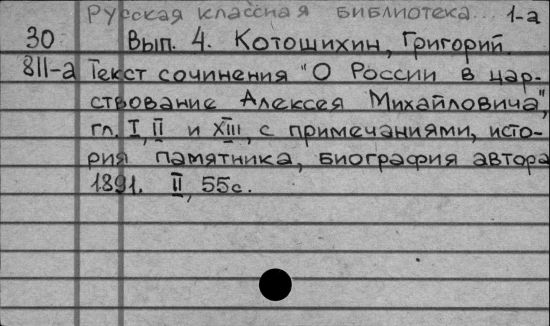 Русская классная библиотека... 1-а
30 Вып. 4. Котошихин, Григорий.
811-а Текст сочинения "О России в цар-
ствование Алексея Михайловича",
гл. I, II и XIII, с примечаниями, исто-
рия памятника, биография автора
1891. II, 55с.